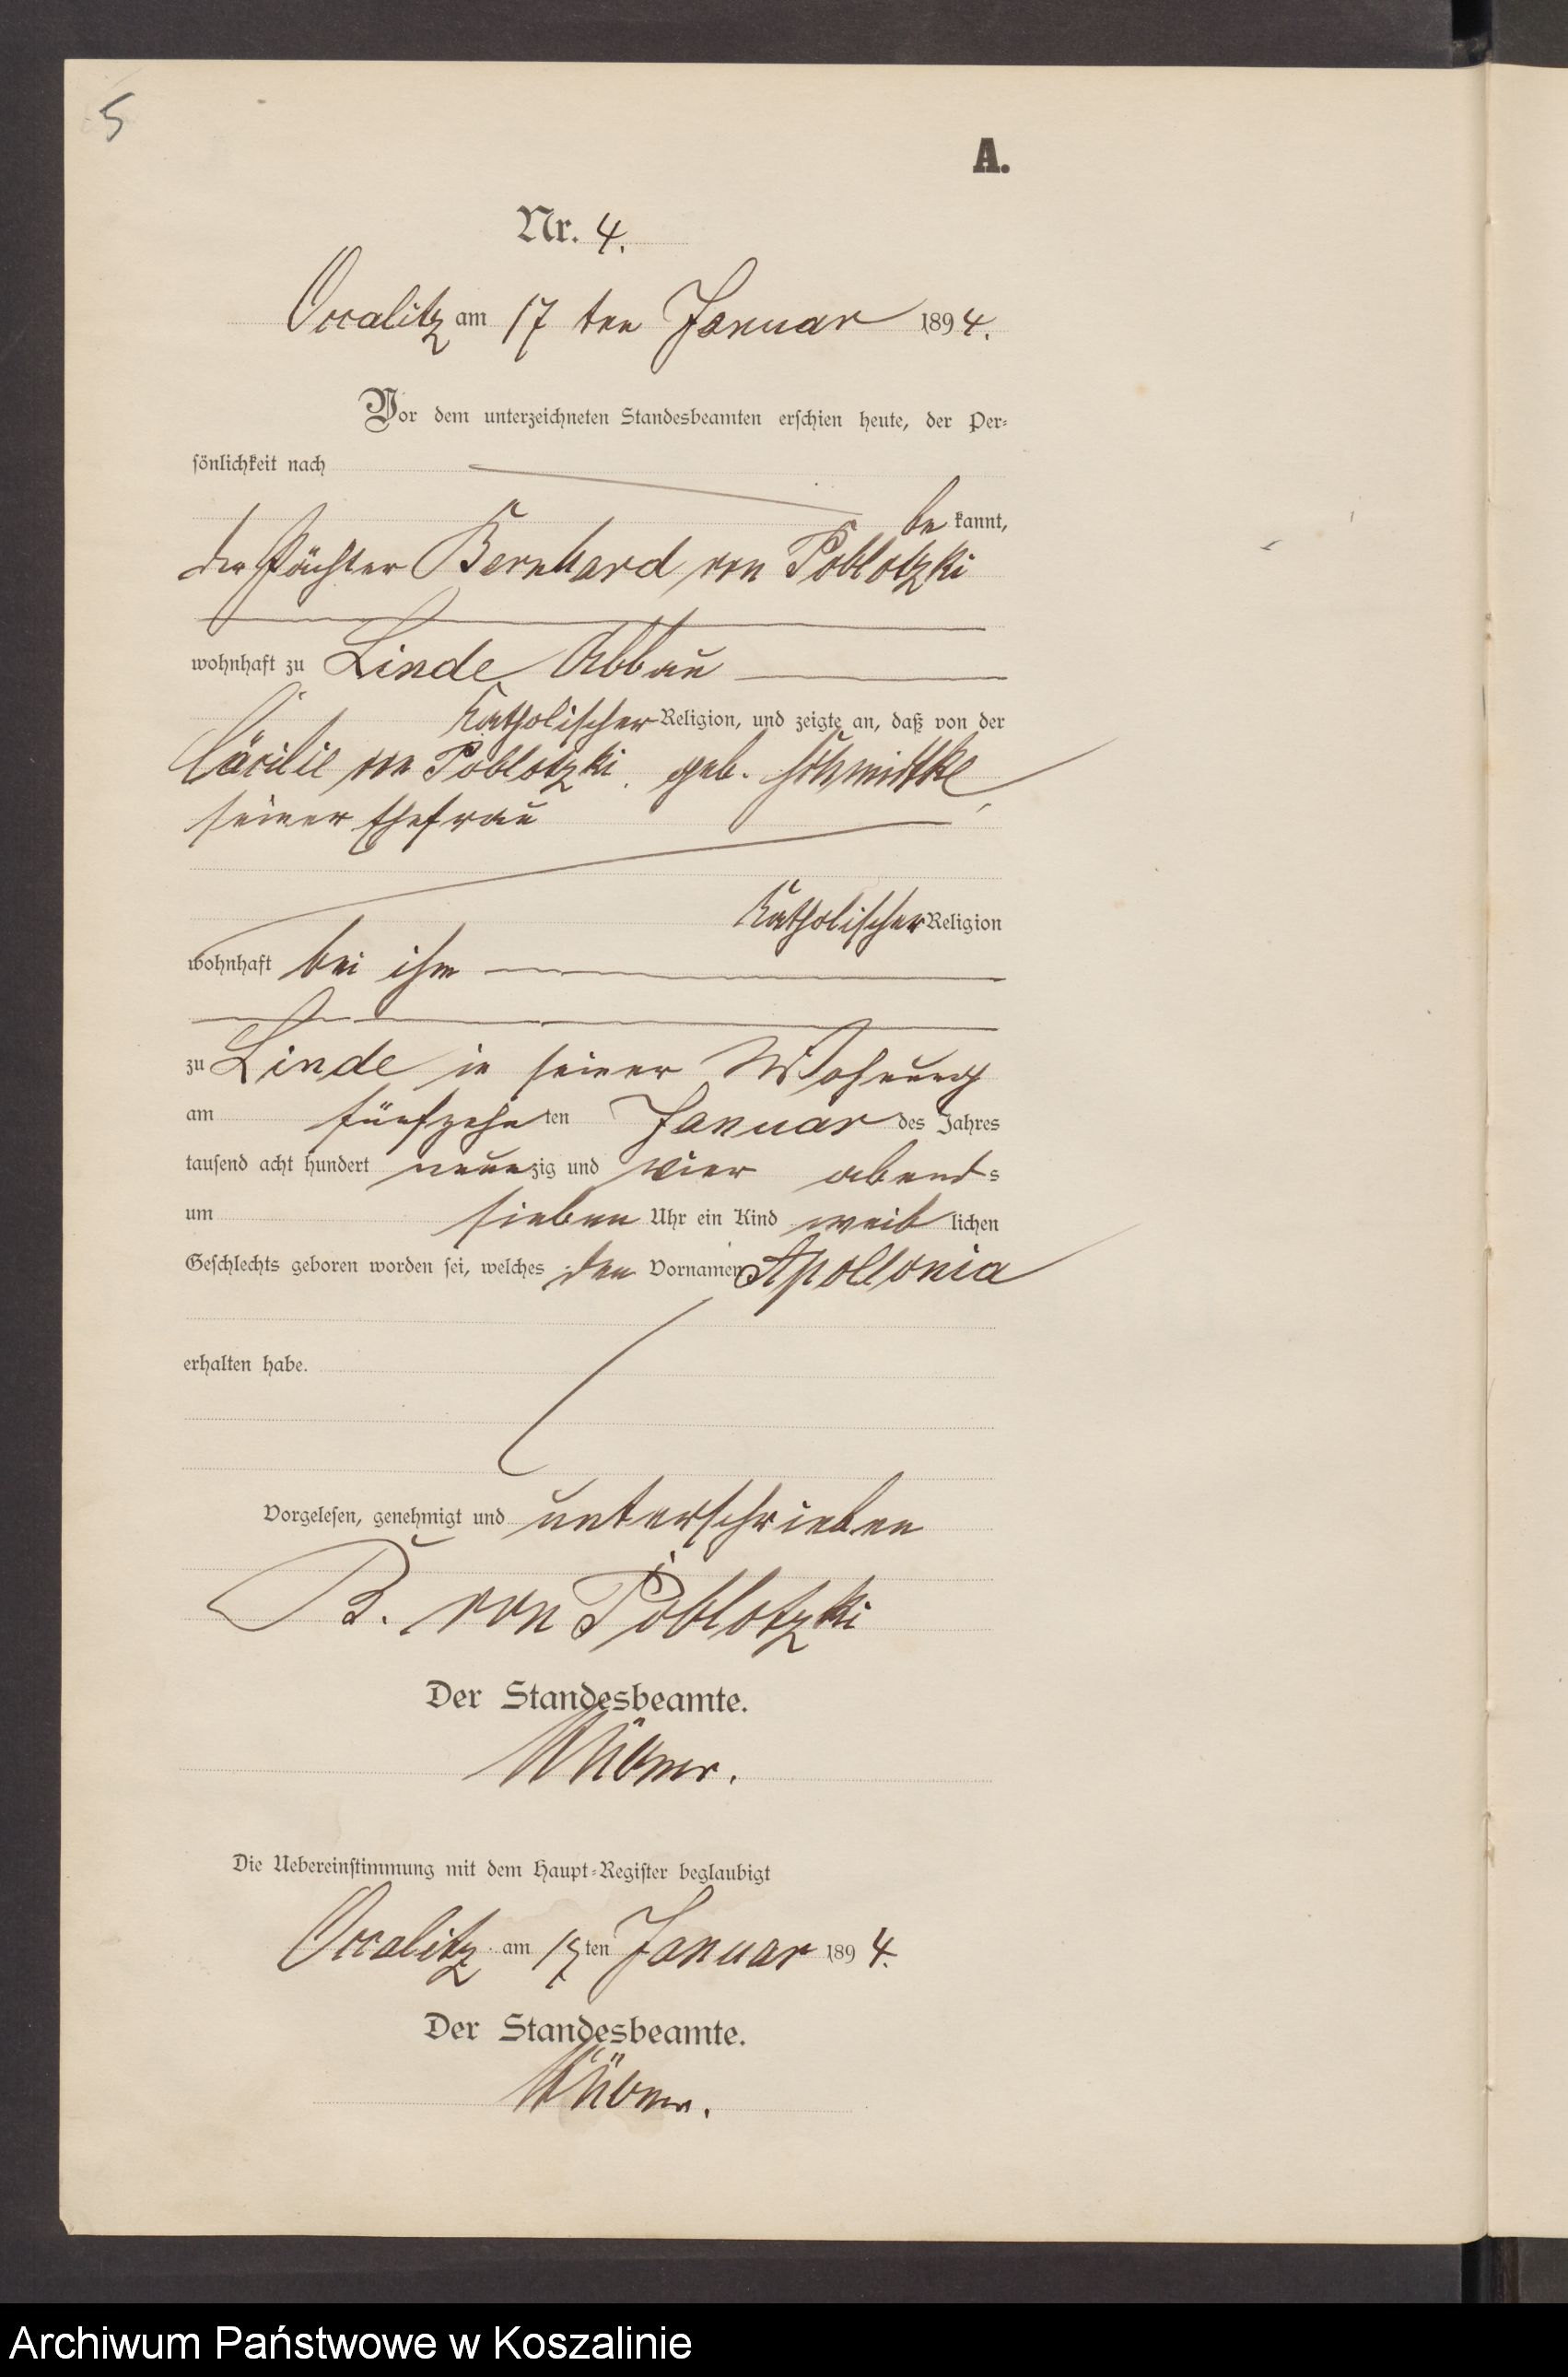 5
A.
Nr. 4.
Occalitz am 17 ten Januar 1894.
Vor dem unterzeichneten Standesbeamten erschien heute, der Per-
sönlichkeit nach
be kannt,
der Pächter Bernhard von Poblotzki
wohnhaft zu Linde Abbau
katholischer Religion, und zeigte an, daß von der
Cäcilie von Poblotzki geb. Schmidtke,
seiner Ehefrau
katholischer Religion
wohnhaft bei ihm
zu Linde in seiner Wohnung
am fünfzehnten Januar des Jahres
tausend acht hundert neunzig und vier abends
um sieben Uhr ein Kind weiblichen
Geschlechts geboren worden sei, welches den Vornamen Apollonia
erhalten habe.
Vorgelesen, genehmigt und unterschrieben
B. von Poblotzki
Der Standesbeamte.
Die Uebereinstimmung mit dem Haupt-Register beglaubigt
Occalitz am 17ten Januar 1894.
Der Standesbeamte.
Archiwum Państwowe w Koszalinie